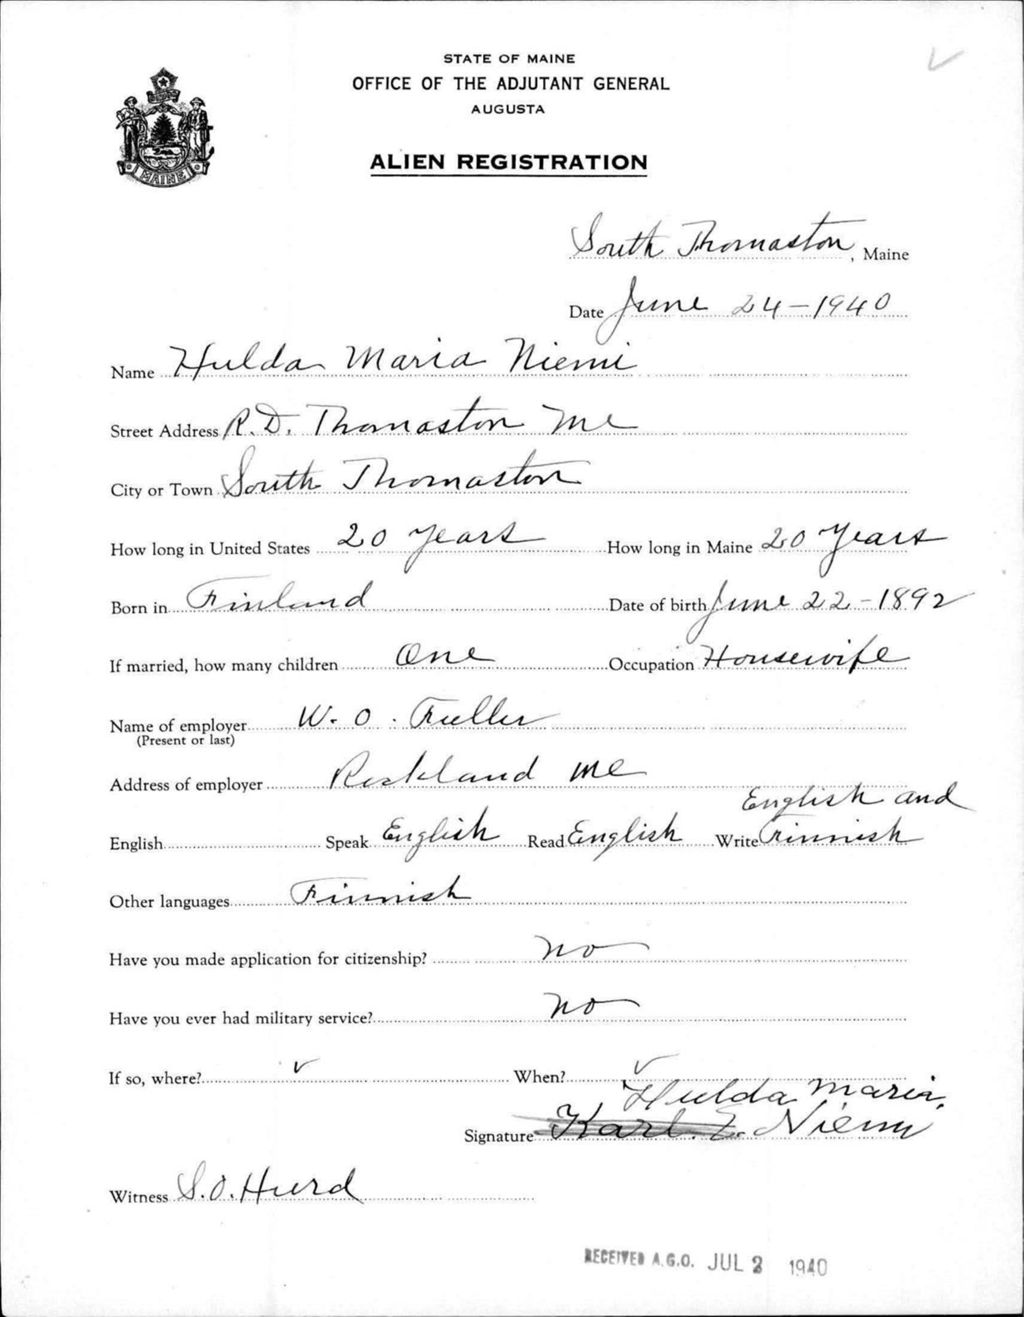 STATE OF MAINE
OFFICE OF THE ADJUTANT GENERAL
AUGUSTA
ALIEN REGISTRATION
MAINE
South Thomaston, Maine
Date June 24-1940
Name Hulda Maria Niemi
Street Address R.D. Thomaston Me
City or Town South Thomaston
How long in United States 20 years How long in Maine 20 Years
Born in Finland Date of birth June 22-1892
If married, how many children One Occupation Housewife
Name of employer W. O. Fuller
(Present or last)
Address of employer Rockland Me
English Speak English Read English Write English and Finnish
Other languages Finnish
Have you made application for citizenship? no
Have you ever had military service? no
If so, where? v When? v
Hulda Maria
Signature Karl E. Niemi
Witness S.O. Hurd
RECEIVED A.G.O. JUL 2 1940